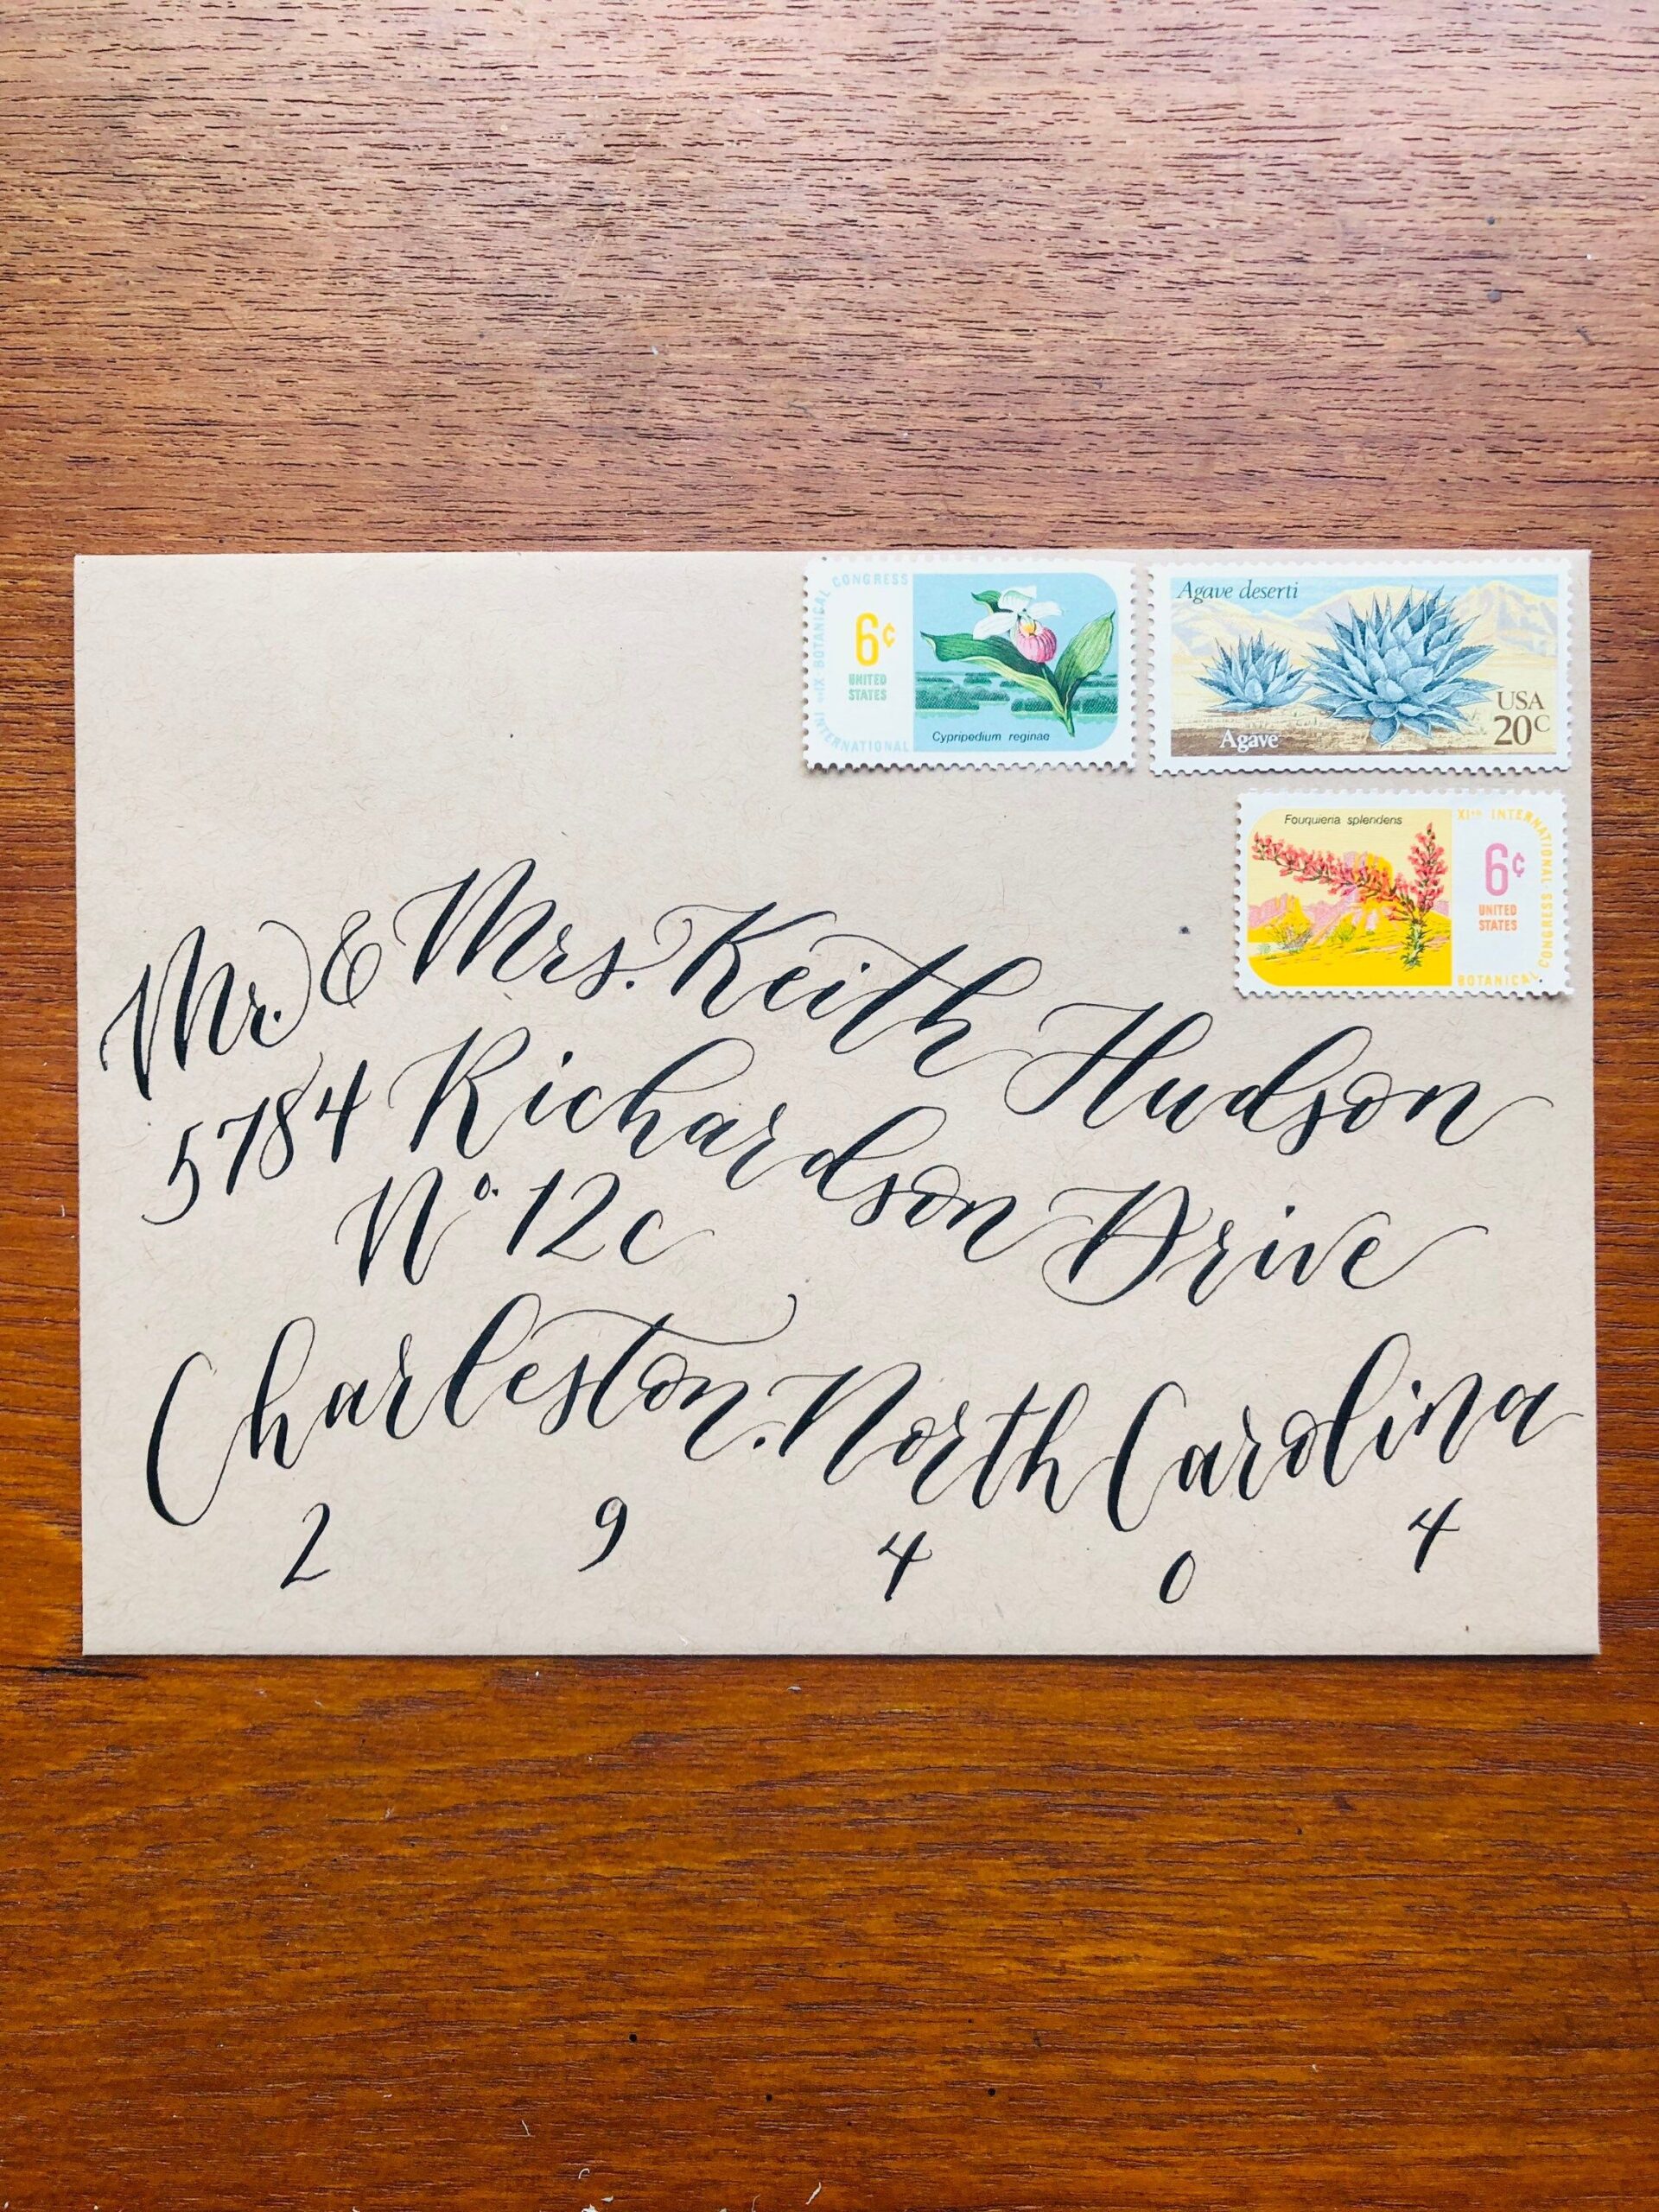 XIth INTERNATIONAL BOTANICAL CONGRESS
6¢
UNITED
STATES
Cypripedium reginae
Agave deserti
Agave
USA
20c
Fouquieria splendens
XIth INTERNATIONAL BOTANICAL CONGRESS
6¢
UNITED
STATES
Mr. & Mrs. Keith Hudson
5784 Richardson Drive
No. 12c
Charleston. North Carolina
2 9 4 0 4